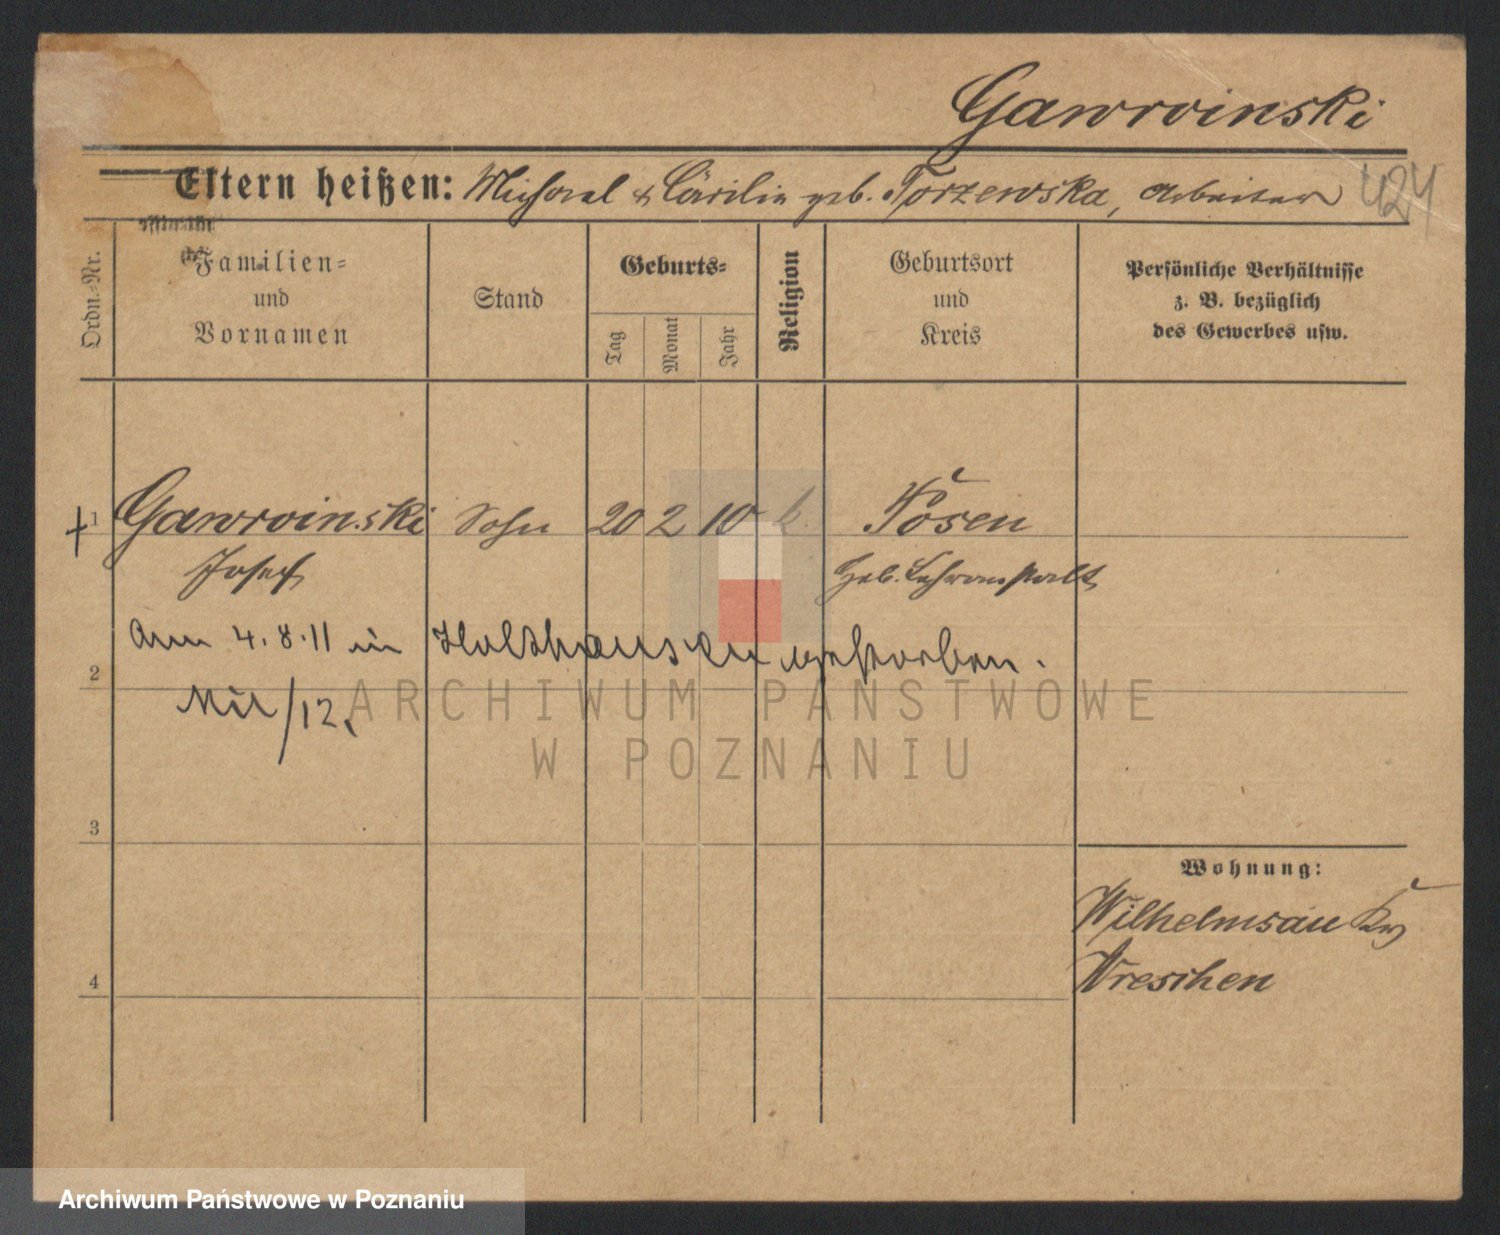 Gawroinski
Eltern heißen: Michael & Cäcilie geb. Torzewska, Arbeiter 424
Ordn.-Nr.
Familien=
und
Vornamen
Stand
Geburts=
Tag
Monat
Jahr
Religion
Geburtsort
und
Kreis
Persönliche Verhältnisse
z. B. bezüglich
des Gewerbes usw.
1 Gawroinski Sohn 20 2 10 k. Posen
Josef Heb. Lehranstalt
am 4.8.11 in Holthausen gestorben.
2
/12.
ARCHIWUM PAŃSTWOWE
W POZNANIU
3
Wohnung:
Wilhelmsau Krs
Wreschen
4
Archiwum Państwowe w Poznaniu